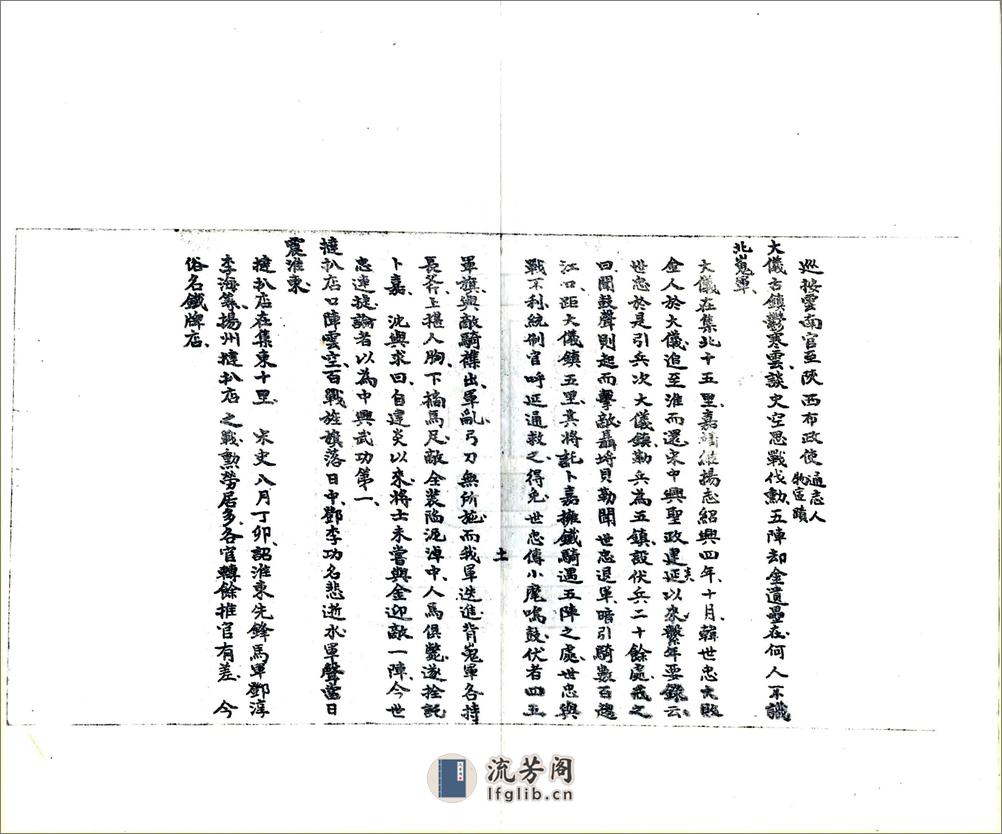 巡按雲南官至陝西布政使通志人物宦蹟
大儀古鎮鬱寒雲談史空思戰伐勲五陣却金遺壘在何人不識
北嵬軍
大儀在集北十五里嘉靖維揚志紹興四年十月韓世忠大敗
金人於大儀追至淮而還宋中興聖政建炎以來繫年要錄云
世忠於是引兵次大儀鎮勒兵為五鎮設伏兵二十餘處戒之
曰聞鼓聲則起而擊敵聶埓貝勒聞世忠退軍暗引騎數百趨
江口距大儀鎮五里其將託卜嘉擁鐵騎遇五陣之處世忠與
戰不利統制官呼延通救之得免世忠傳小麾鳴鼓伏者四五
十一
軍旗與敵騎襍出軍亂弓刀無所施而我軍迭進背嵬軍各持
長斧上揕人胸下捎馬足敵全裝陷泥淖中人馬俱斃遂拴託
卜嘉沈與求曰自建炎以來將士未嘗與金迎敵一陣今世
忠連捷論者以為中興武功第一
撻扒店口陣雲空百戰旌旗落日中鄧李功名悲逝水軍聲當日
震淮東
撻扒店在集東十里宋史八月丁卯詔淮東先鋒馬軍鄧淳
李海等揚州撻扒店之戰勲勞居多各官轉餘推官有差今
俗名鐵牌店
流芳阁
lfglib.cn